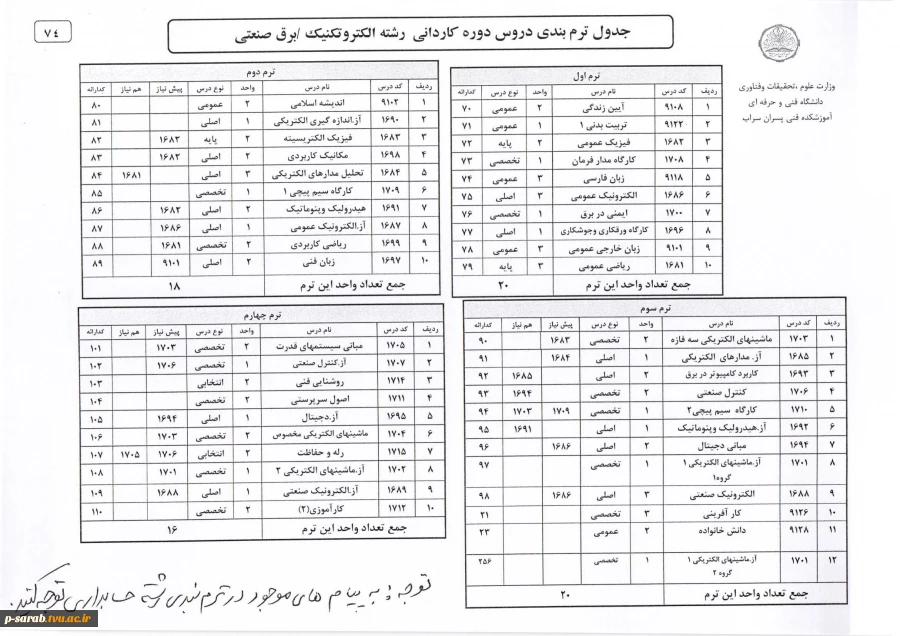 ۷۴
جدول ترم بندی دروس دوره کاردانی رشته الکتروتکنیک /برق صنعتی
وزارت علوم ،تحقیقات وفناوری
دانشگاه فنی و حرفه ای
آموزشکده فنی پسران سراب
ترم اول
ردیف کد درس نام درس واحد نوع درس کدارائه
۱ ۹۱۰۸ آیین زندگی ۲ عمومی ۷۰
۲ ۹۱۲۲ تربیت بدنی ۱ ۱ عمومی ۷۱
۳ ۱۶۸۲ فیزیک عمومی ۲ پایه ۷۲
۴ ۱۷۰۸ کارگاه مدار فرمان ۱ تخصصی ۷۳
۵ ۹۱۱۸ زبان فارسی ۳ عمومی ۷۴
۶ ۱۶۸۶ الکترونیک عمومی ۳ اصلی ۷۵
۷ ۱۷۰۰ ایمنی در برق ۱ تخصصی ۷۶
۸ ۱۶۹۶ کارگاه ورقکاری وجوشکاری ۱ اصلی ۷۷
۹ ۹۱۰۱ زبان خارجی عمومی ۳ عمومی ۷۸
۱۰ ۱۶۸۱ ریاضی عمومی ۳ پایه ۷۹
جمع تعداد واحد این ترم ۲۰
ترم دوم
ردیف کد درس نام درس واحد نوع درس پیش نیاز هم نیاز کدارائه
۱ ۹۱۰۲ اندیشه اسلامی ۲ عمومی ۸۰
۲ ۱۶۹۰ آز.اندازه گیری الکتریکی ۱ اصلی ۸۱
۳ ۱۶۸۳ فیزیک الکتریسیته ۲ پایه ۱۶۸۲ ۸۲
۴ ۱۶۹۸ مکانیک کاربردی ۲ اصلی ۱۶۸۲ ۸۳
۵ ۱۶۸۴ تحلیل مدارهای الکتریکی ۳ اصلی ۱۶۸۱ ۸۴
۶ ۱۷۰۹ کارگاه سیم پیچی ۱ ۱ تخصصی ۸۵
۷ ۱۶۹۱ هیدرولیک وپنوماتیک ۲ اصلی ۱۶۸۲ ۸۶
۸ ۱۶۸۷ آز.الکترونیک عمومی ۱ اصلی ۱۶۸۶ ۸۷
۹ ۱۶۹۹ ریاضی کاربردی ۲ تخصصی ۱۶۸۱ ۸۸
۱۰ ۱۶۹۷ زبان فنی ۲ اصلی ۹۱۰۱ ۸۹
جمع تعداد واحد این ترم ۱۸
ترم سوم
ردیف کد درس نام درس واحد نوع درس پیش نیاز هم نیاز کدارائه
۱ ۱۷۰۳ ماشینهای الکتریکی سه فازه ۲ تخصصی ۱۶۸۳ ۹۰
۲ ۱۶۸۵ آز. مدارهای الکتریکی ۱ اصلی ۱۶۸۴ ۹۱
۳ ۱۶۹۳ کاربرد کامپیوتر در برق ۲ اصلی ۱۶۸۵ ۹۲
۴ ۱۷۰۶ کنترل صنعتی ۲ تخصصی ۱۶۹۴ ۹۳
۵ ۱۷۱۰ کارگاه سیم پیچی۲ ۱ تخصصی ۱۷۰۹ ۱۷۰۳ ۹۴
۶ ۱۶۹۲ آز.هیدرولیک وپنوماتیک ۱ اصلی ۱۶۹۱ ۹۵
۷ ۱۶۹۴ مبانی دیجیتال ۲ اصلی ۱۶۸۶ ۹۶
۸ ۱۷۰۱ آز.ماشینهای الکتریکی ۱ ۱ تخصصی ۹۷
گروه۱
۹ ۱۶۸۸ الکترونیک صنعتی ۳ اصلی ۱۶۸۶ ۹۸
۱۰ ۹۱۲۶ کار آفرینی ۳ تخصصی ۲۱
۱۱ ۹۱۲۸ دانش خانواده ۲ عمومی ۲۳
۱۲ ۱۷۰۱ آز.ماشینهای الکتریکی ۱ ۱ تخصصی ۲۵۶
گروه ۲
جمع تعداد واحد این ترم ۲۰
ترم چهارم
ردیف کد درس نام درس واحد نوع درس پیش نیاز هم نیاز کدارائه
۱ ۱۷۰۵ مبانی سیستمهای قدرت ۲ تخصصی ۱۷۰۳ ۱۰۱
۲ ۱۷۰۷ آز.کنترل صنعتی ۱ تخصصی ۱۷۰۶ ۱۰۲
۳ ۱۷۱۴ روشنایی فنی ۲ انتخابی ۱۰۳
۴ ۱۷۱۱ اصول سرپرستی ۲ تخصصی ۱۰۴
۵ ۱۶۹۵ آز.دجیتال ۱ اصلی ۱۶۹۴ ۱۰۵
۶ ۱۷۰۴ ماشینهای الکتریکی مخصوص ۲ تخصصی ۱۷۰۳ ۱۰۶
۷ ۱۷۱۵ رله و حفاظت ۲ انتخابی ۱۷۰۶ ۱۷۰۵ ۱۰۷
۸ ۱۷۰۲ آز.ماشینهای الکتریکی ۲ ۱ تخصصی ۱۷۰۱ ۱۰۸
۹ ۱۶۸۹ آز.الکترونیک صنعتی ۱ اصلی ۱۶۸۸ ۱۰۹
۱۰ ۱۷۱۲ کارآموزی(۲) ۲ تخصصی ۱۱۰
جمع تعداد واحد این ترم ۱۶
توجه : به پیام های موجود در ترم بندی رشته حسابداری توجه کنید.
p-sarab.tvu.ac.ir